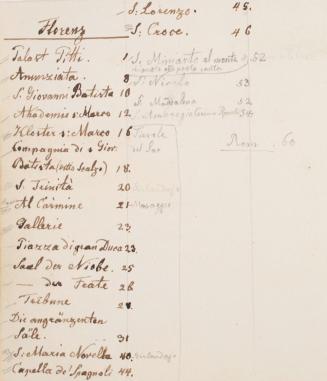 Florenz
Palast Pitti. 1
Anunziata 8
S. Giovanni Batista 10
Akademie s: Marco 12
Kloster s: Marco 16
Compagnia di s Giov:
Batista (detto Scalzo) 18.
S. Trinità 20
Al Carmine 21
Gallerie 23
Piazza di gran Duca 23.
Saal der Niobe. 25
— der Feate 26
Tribune
Die angränzenten
Säle. 31
S: Maria Novella 40.
Capella de' Spagnoli 44.
S: Lorenzo. 45.
S: Croce. 46
S: Miniato al monte 52
S: Nicolo 53
S. Madalena 52
S. Ambrogio 54
Tavole
Rom. 60